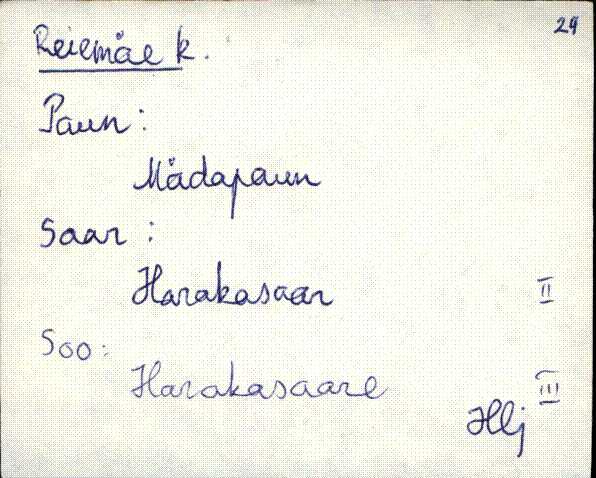 24
Reiemäe k.
Paun:
Mädapaun
Saar:
Harakasaar II
Soo:
Harakasaare III
Hlj